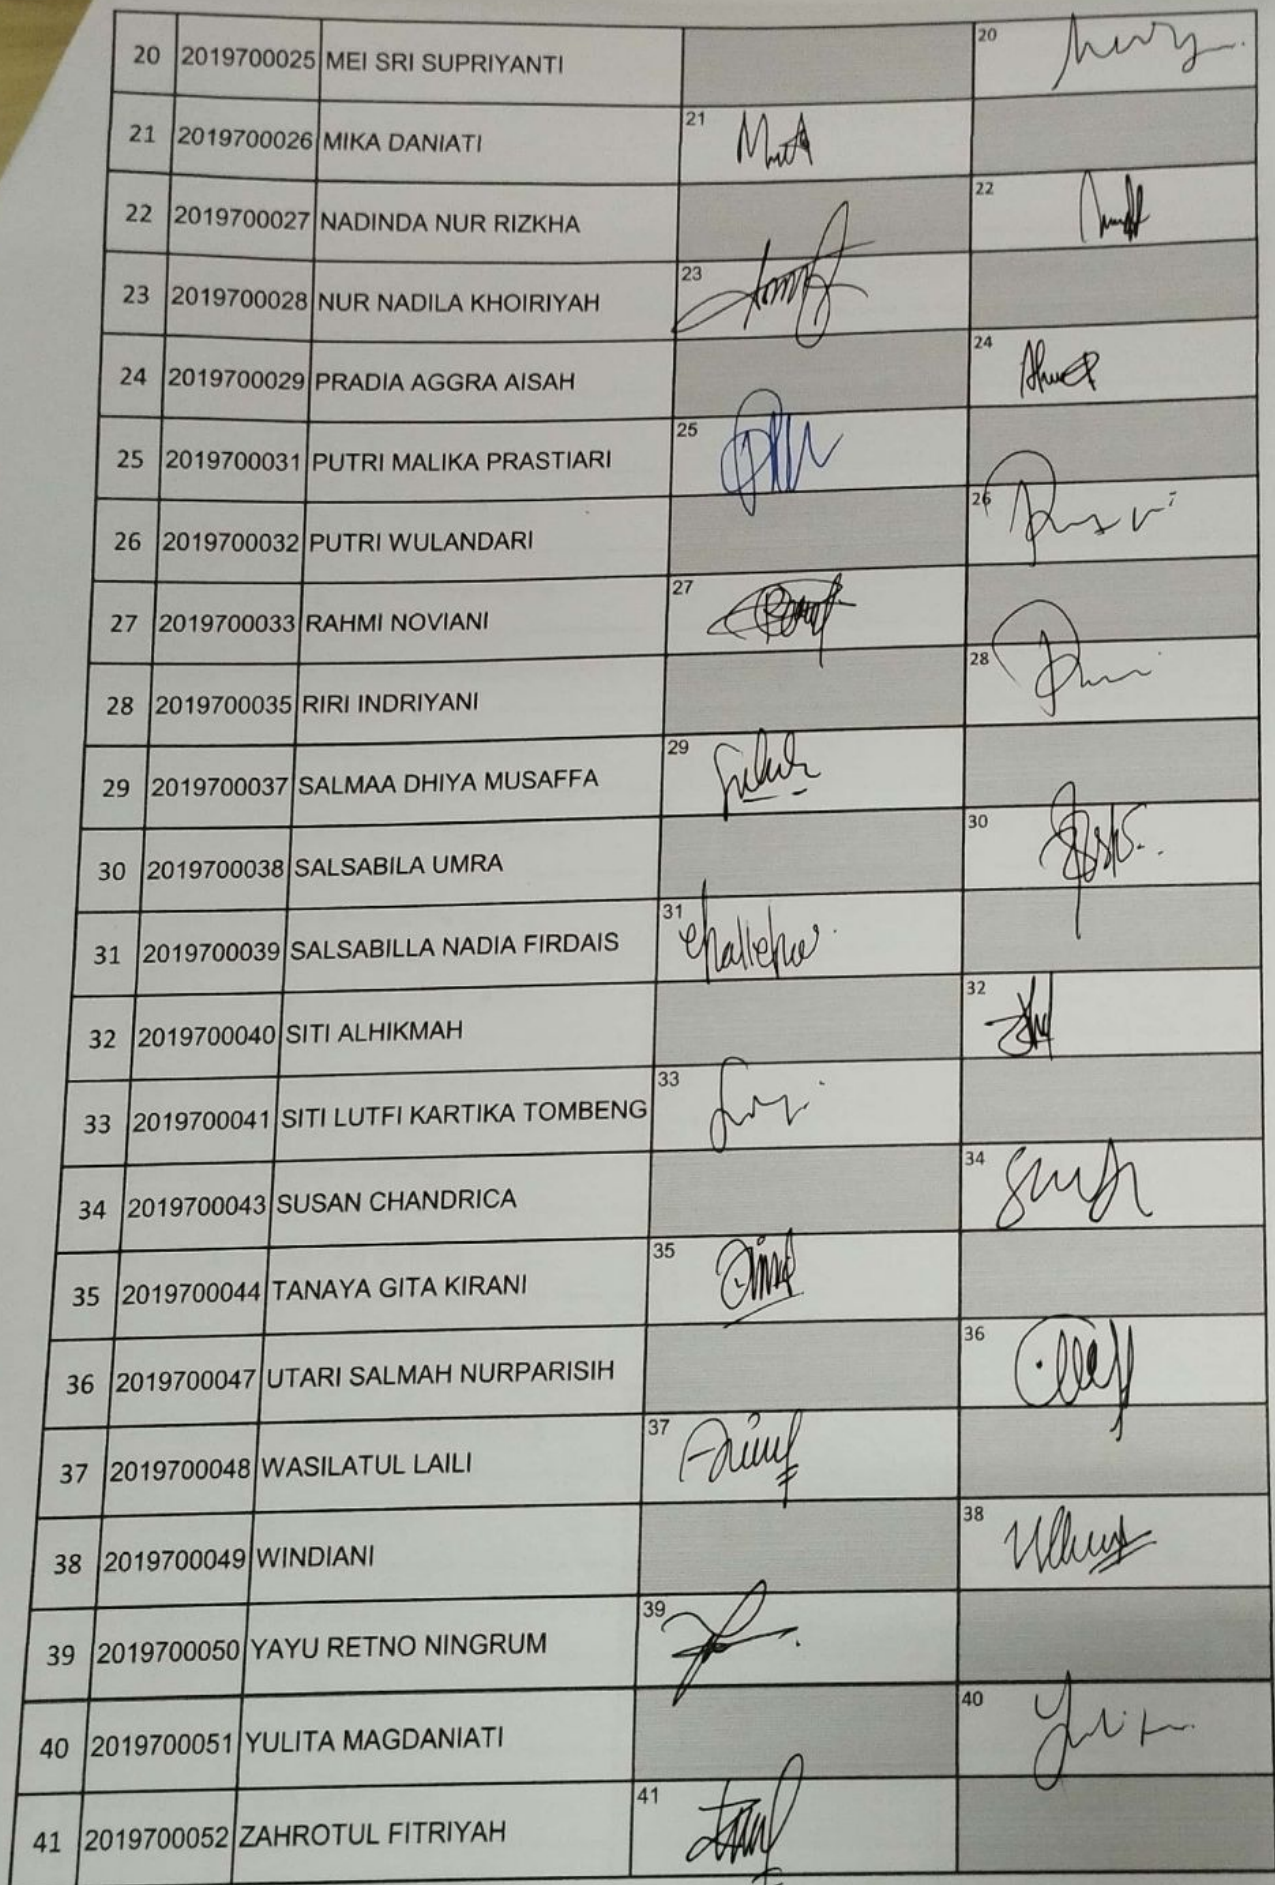 20 2019700025 MEI SRI SUPRIYANTI 20
21 2019700026 MIKA DANIATI 21
22 2019700027 NADINDA NUR RIZKHA 22
23 2019700028 NUR NADILA KHOIRIYAH 23
24 2019700029 PRADIA AGGRA AISAH 24
25 2019700031 PUTRI MALIKA PRASTIARI 25
26 2019700032 PUTRI WULANDARI 26
27 2019700033 RAHMI NOVIANI 27
28 2019700035 RIRI INDRIYANI 28
29 2019700037 SALMAA DHIYA MUSAFFA 29
30 2019700038 SALSABILA UMRA 30
31 2019700039 SALSABILLA NADIA FIRDAIS 31
32 2019700040 SITI ALHIKMAH 32
33 2019700041 SITI LUTFI KARTIKA TOMBENG 33
34 2019700043 SUSAN CHANDRICA 34
35 2019700044 TANAYA GITA KIRANI 35
36 2019700047 UTARI SALMAH NURPARISIH 36
37 2019700048 WASILATUL LAILI 37
38 2019700049 WINDIANI 38
39 2019700050 YAYU RETNO NINGRUM 39
40 2019700051 YULITA MAGDANIATI 40
41 2019700052 ZAHROTUL FITRIYAH 41